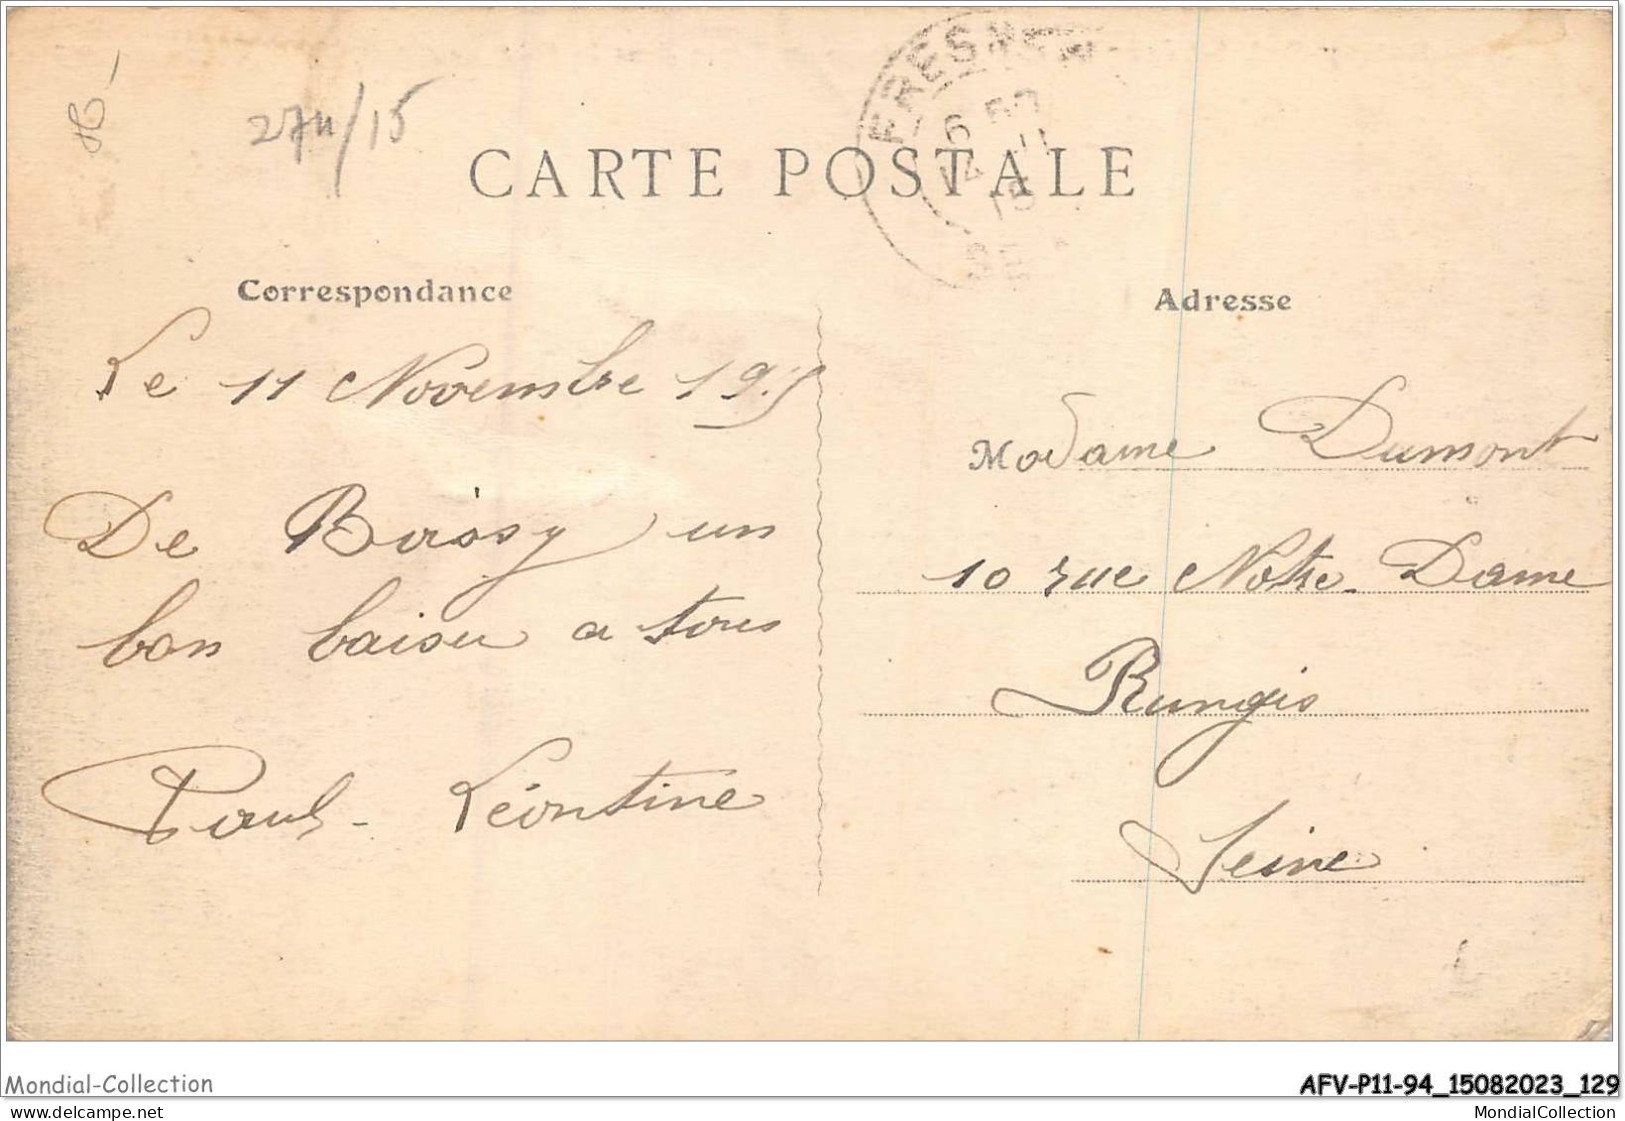 27 11/15
FRESNES
6 50
12 -11
15
CARTE POSTALE
Correspondance
Adresse
Le 11 Novembre 1915
De Boissy un
bon baiser a tous
Paul - Léontine
Madame Dumont
10 rue Notre-Dame
Rungis
Seine
Mondial-Collection
AFV-P11-94_15082023_129
© delcampe.net
MondialCollection